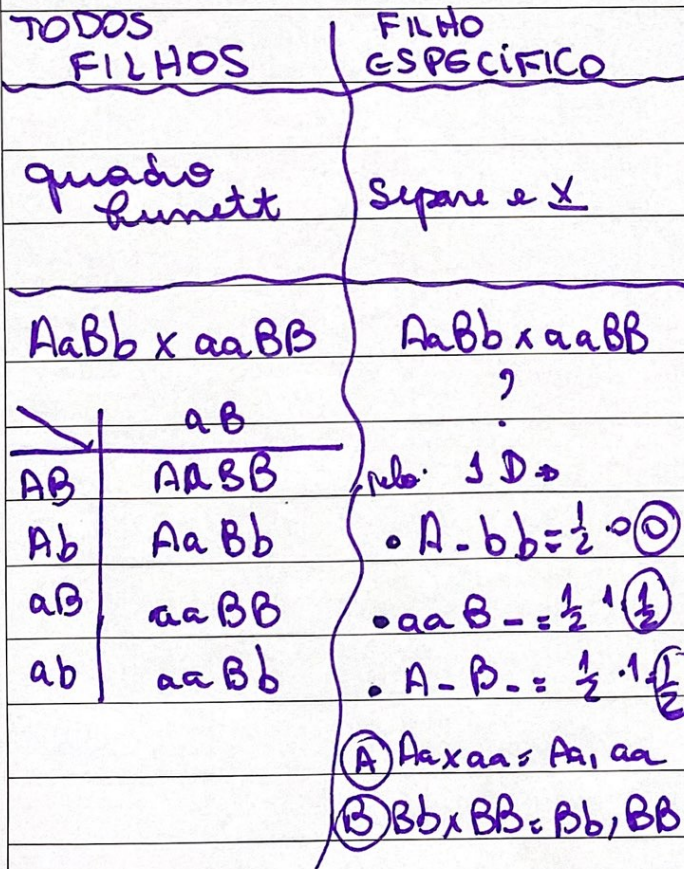 TODOS
FILHOS
quadro
Punett
AaBb x aaBB
aB
AB AaBB
Ab AaBb
aB aaBB
ab aaBb
FILHO
ESPECÍFICO
Separe e X
AaBb x aaBB
?
1 D →
• A - bb = 1/2 · 0 0
• aa B - = 1/2 · 1 1/2
• A - B - = 1/2 · 1 = 1/2
A Aa x aa = Aa, aa
B Bb x BB = Bb, BB